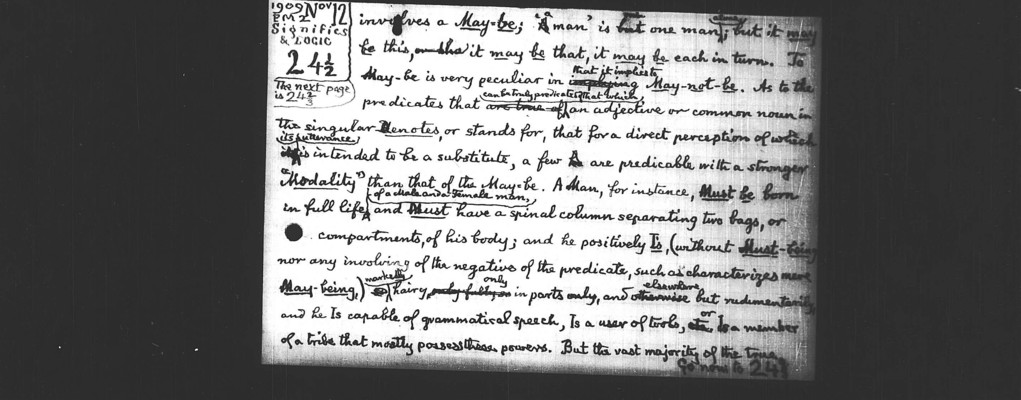 1909 Nov 12
PM 2
Significs
& LOGIC
24½
The next page
is 24⅔
involves a May-be; "A man" is but one man, but it may
already
be this, or sha it may be that, it may be each in turn. To
that it implies its
May-be is very peculiar in implying May-not-be. As to the
can be truly predicated of that which
predicates that are true of an adjective or common noun in
the singular Denotes, or stands for, that for a direct perception of which
its utterance,
is intended to be a substitute, a few are predicable with a stronger
"Modality" than that of the May-be. A Man, for instance, Must be born
of a Male and a Female man,
in full life, and Must have a spinal column separating two bags, or
compartments, of his body; and he positively Is, (without Must-being
nor any involving of the negative of the predicate, such as characterizes mere
markedly only elsewhere
May-being,) hairy, only fully so in parts only, and otherwise but rudimentarily,
or
and he Is capable of grammatical speech, Is a user of tools, etc. Is a member
of a tribe that mostly possess these powers. But the vast majority of the true
Go now to 24⅔